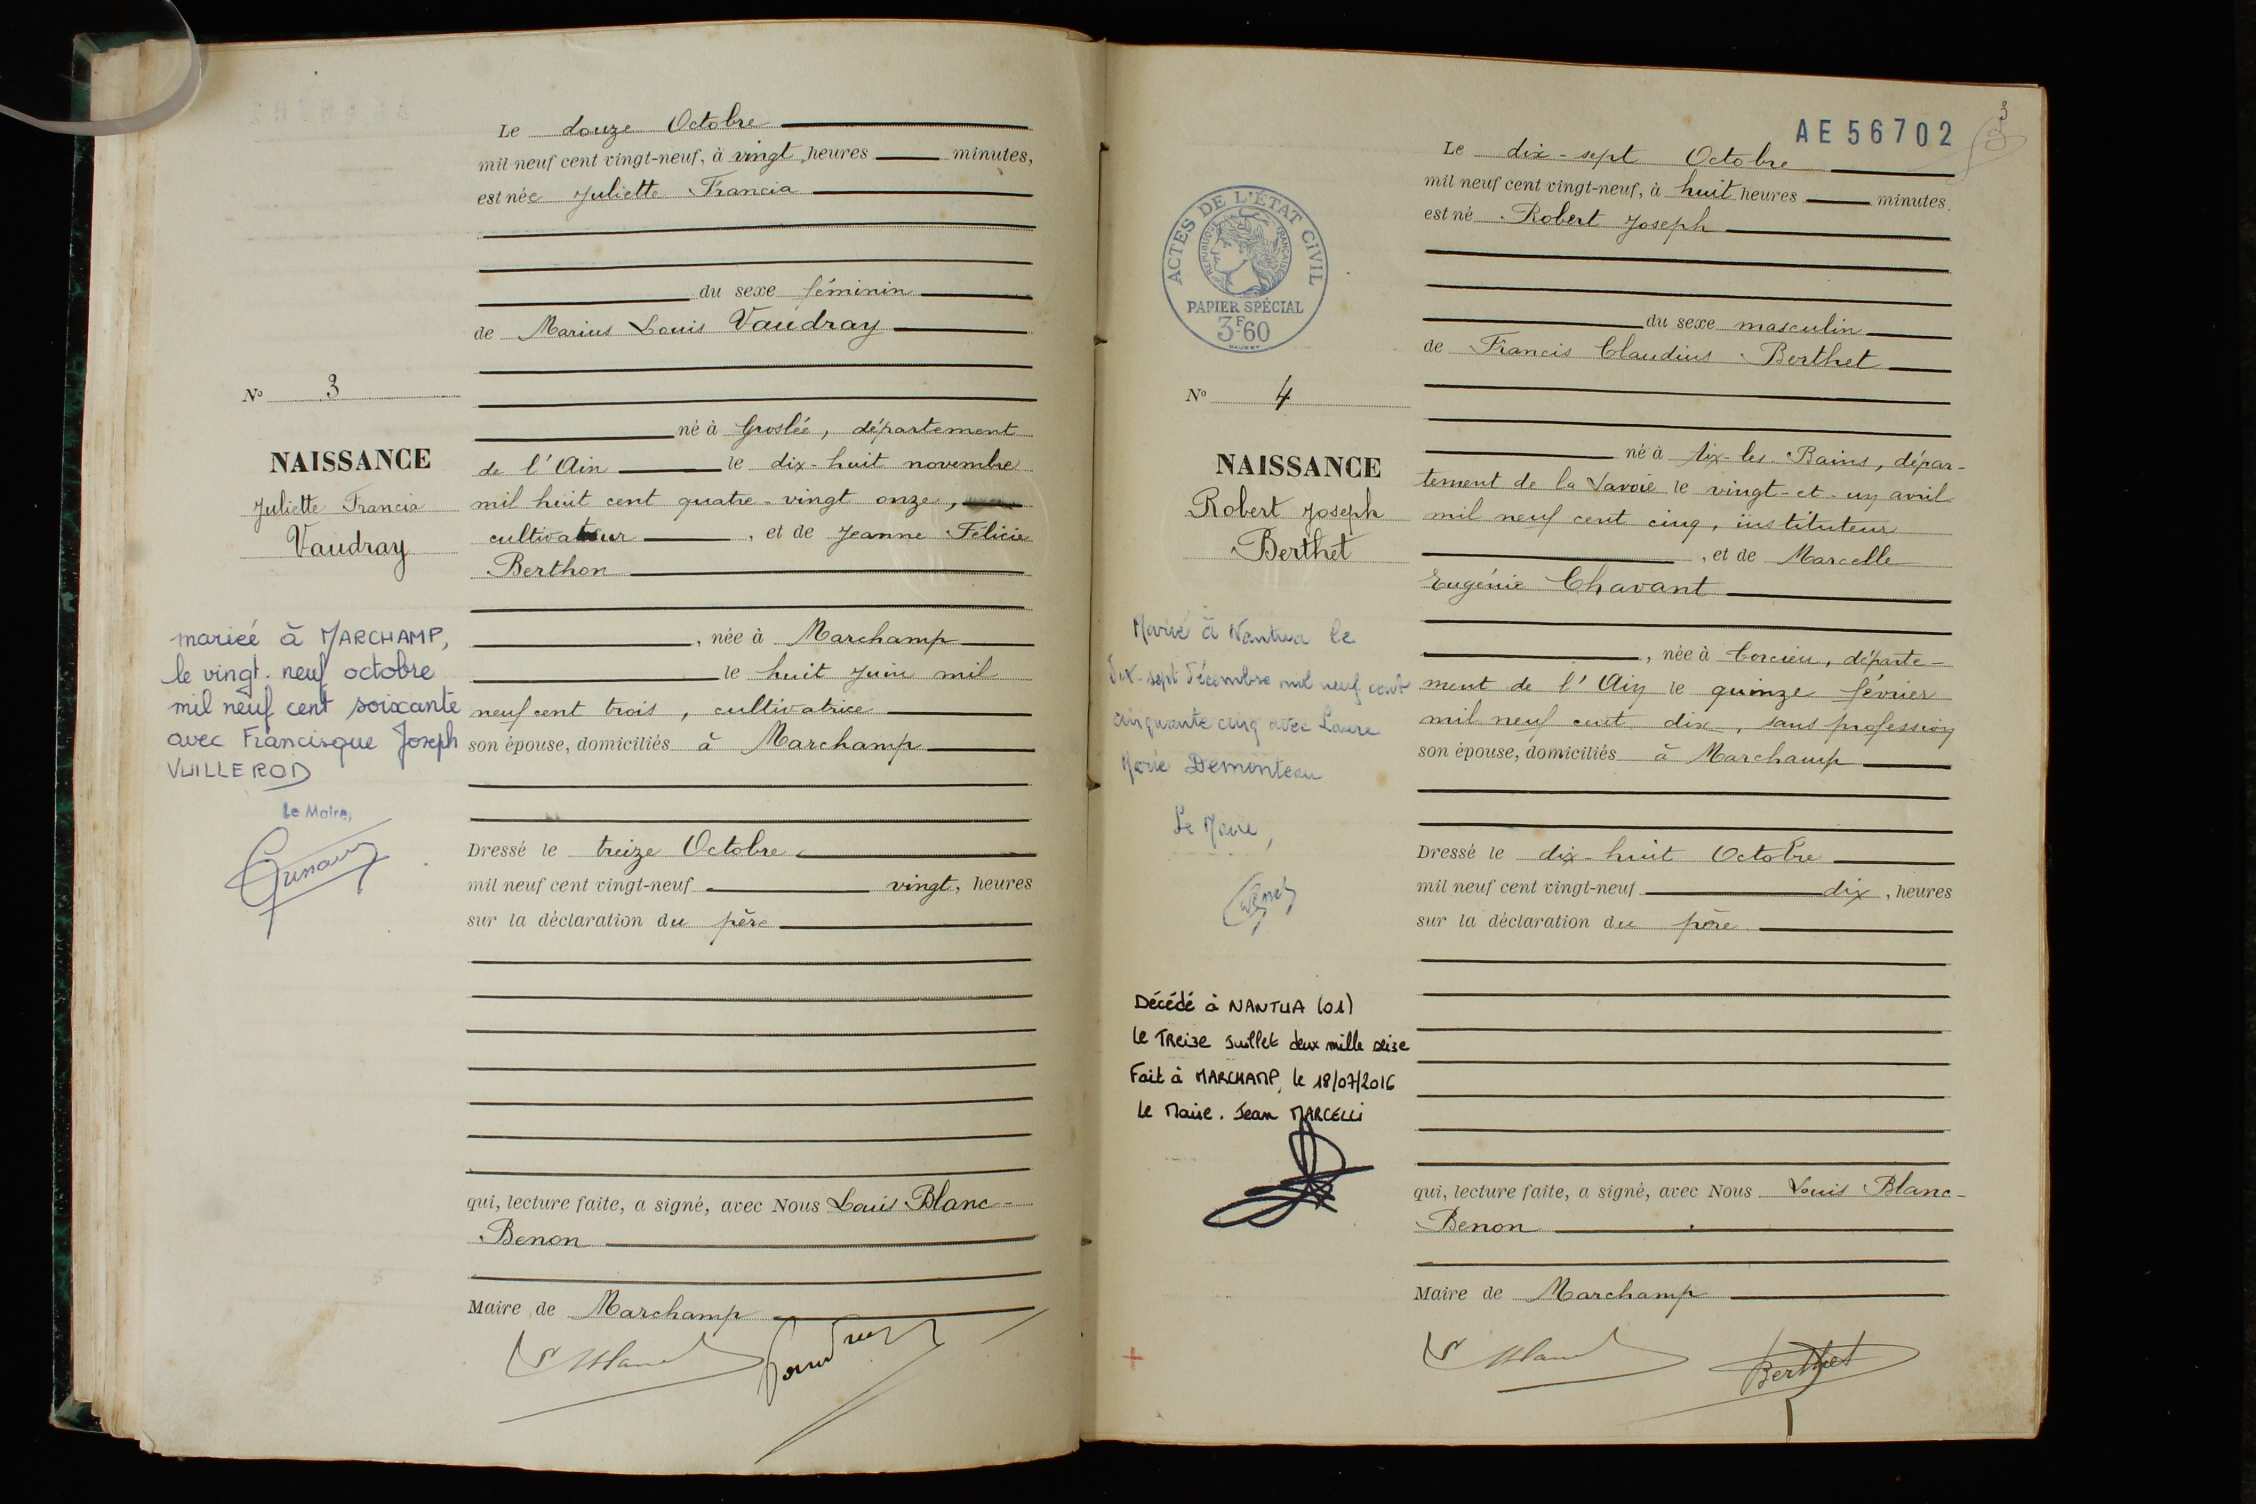 Le douze Octobre
mil neuf cent vingt-neuf, à vingt heures minutes,
est née Juliette Francia
du sexe féminin
de Marius Louis Vaudray
N° 3
né à Groslée, département
NAISSANCE
de l'Ain le dix-huit novembre
Juliette Francia
mil huit cent quatre-vingt onze,
Vaudray
cultivateur, et de Jeanne Félicie
Berthon
mariée à MARCHAMP,
le vingt-neuf octobre
mil neuf cent soixante
avec Francisque Joseph
VUILLEROD
Le Maire,
, née à Marchamp
le huit Juin mil
neuf cent trois, cultivatrice
son épouse, domiciliés à Marchamp
Dressé le treize Octobre
mil neuf cent vingt-neuf vingt, heures
sur la déclaration du père
qui, lecture faite, a signé, avec Nous Louis Blanc-
Benon
Maire de Marchamp
AE56702
3
Le dix-sept Octobre
mil neuf cent vingt-neuf, à huit heures minutes
est né Robert Joseph
ACTES DE L'ÉTAT CIVIL
RÉPUBLIQUE FRANÇAISE
PAPIER SPÉCIAL
3F60
du sexe masculin
de Francis Claudius Berthet
N° 4
né à Aix-les-Bains, dépar-
NAISSANCE
tement de la Savoie le vingt-et-un avril
Robert Joseph
mil neuf cent cinq, instituteur
Berthet
, et de Marcelle
Eugénie Chavant
Marié à Nantua le
Dix-sept Décembre mil neuf cent
cinquante cinq avec Laure
Marie Demonteau
Le Maire,
, née à Torcieu, départe-
ment de l'Ain le quinze février
mil neuf cent dix, sans profession
son épouse, domiciliés à Marchamp
Dressé le dix-huit Octobre
mil neuf cent vingt-neuf dix, heures
sur la déclaration du père
Décédé à NANTUA (01)
Le Treize Juillet deux mille seize
Fait à MARCHAMP, le 18/07/2016
Le Maire. Jean MARCELLI
qui, lecture faite, a signé, avec Nous Louis Blanc-
Benon
Maire de Marchamp
Berthet